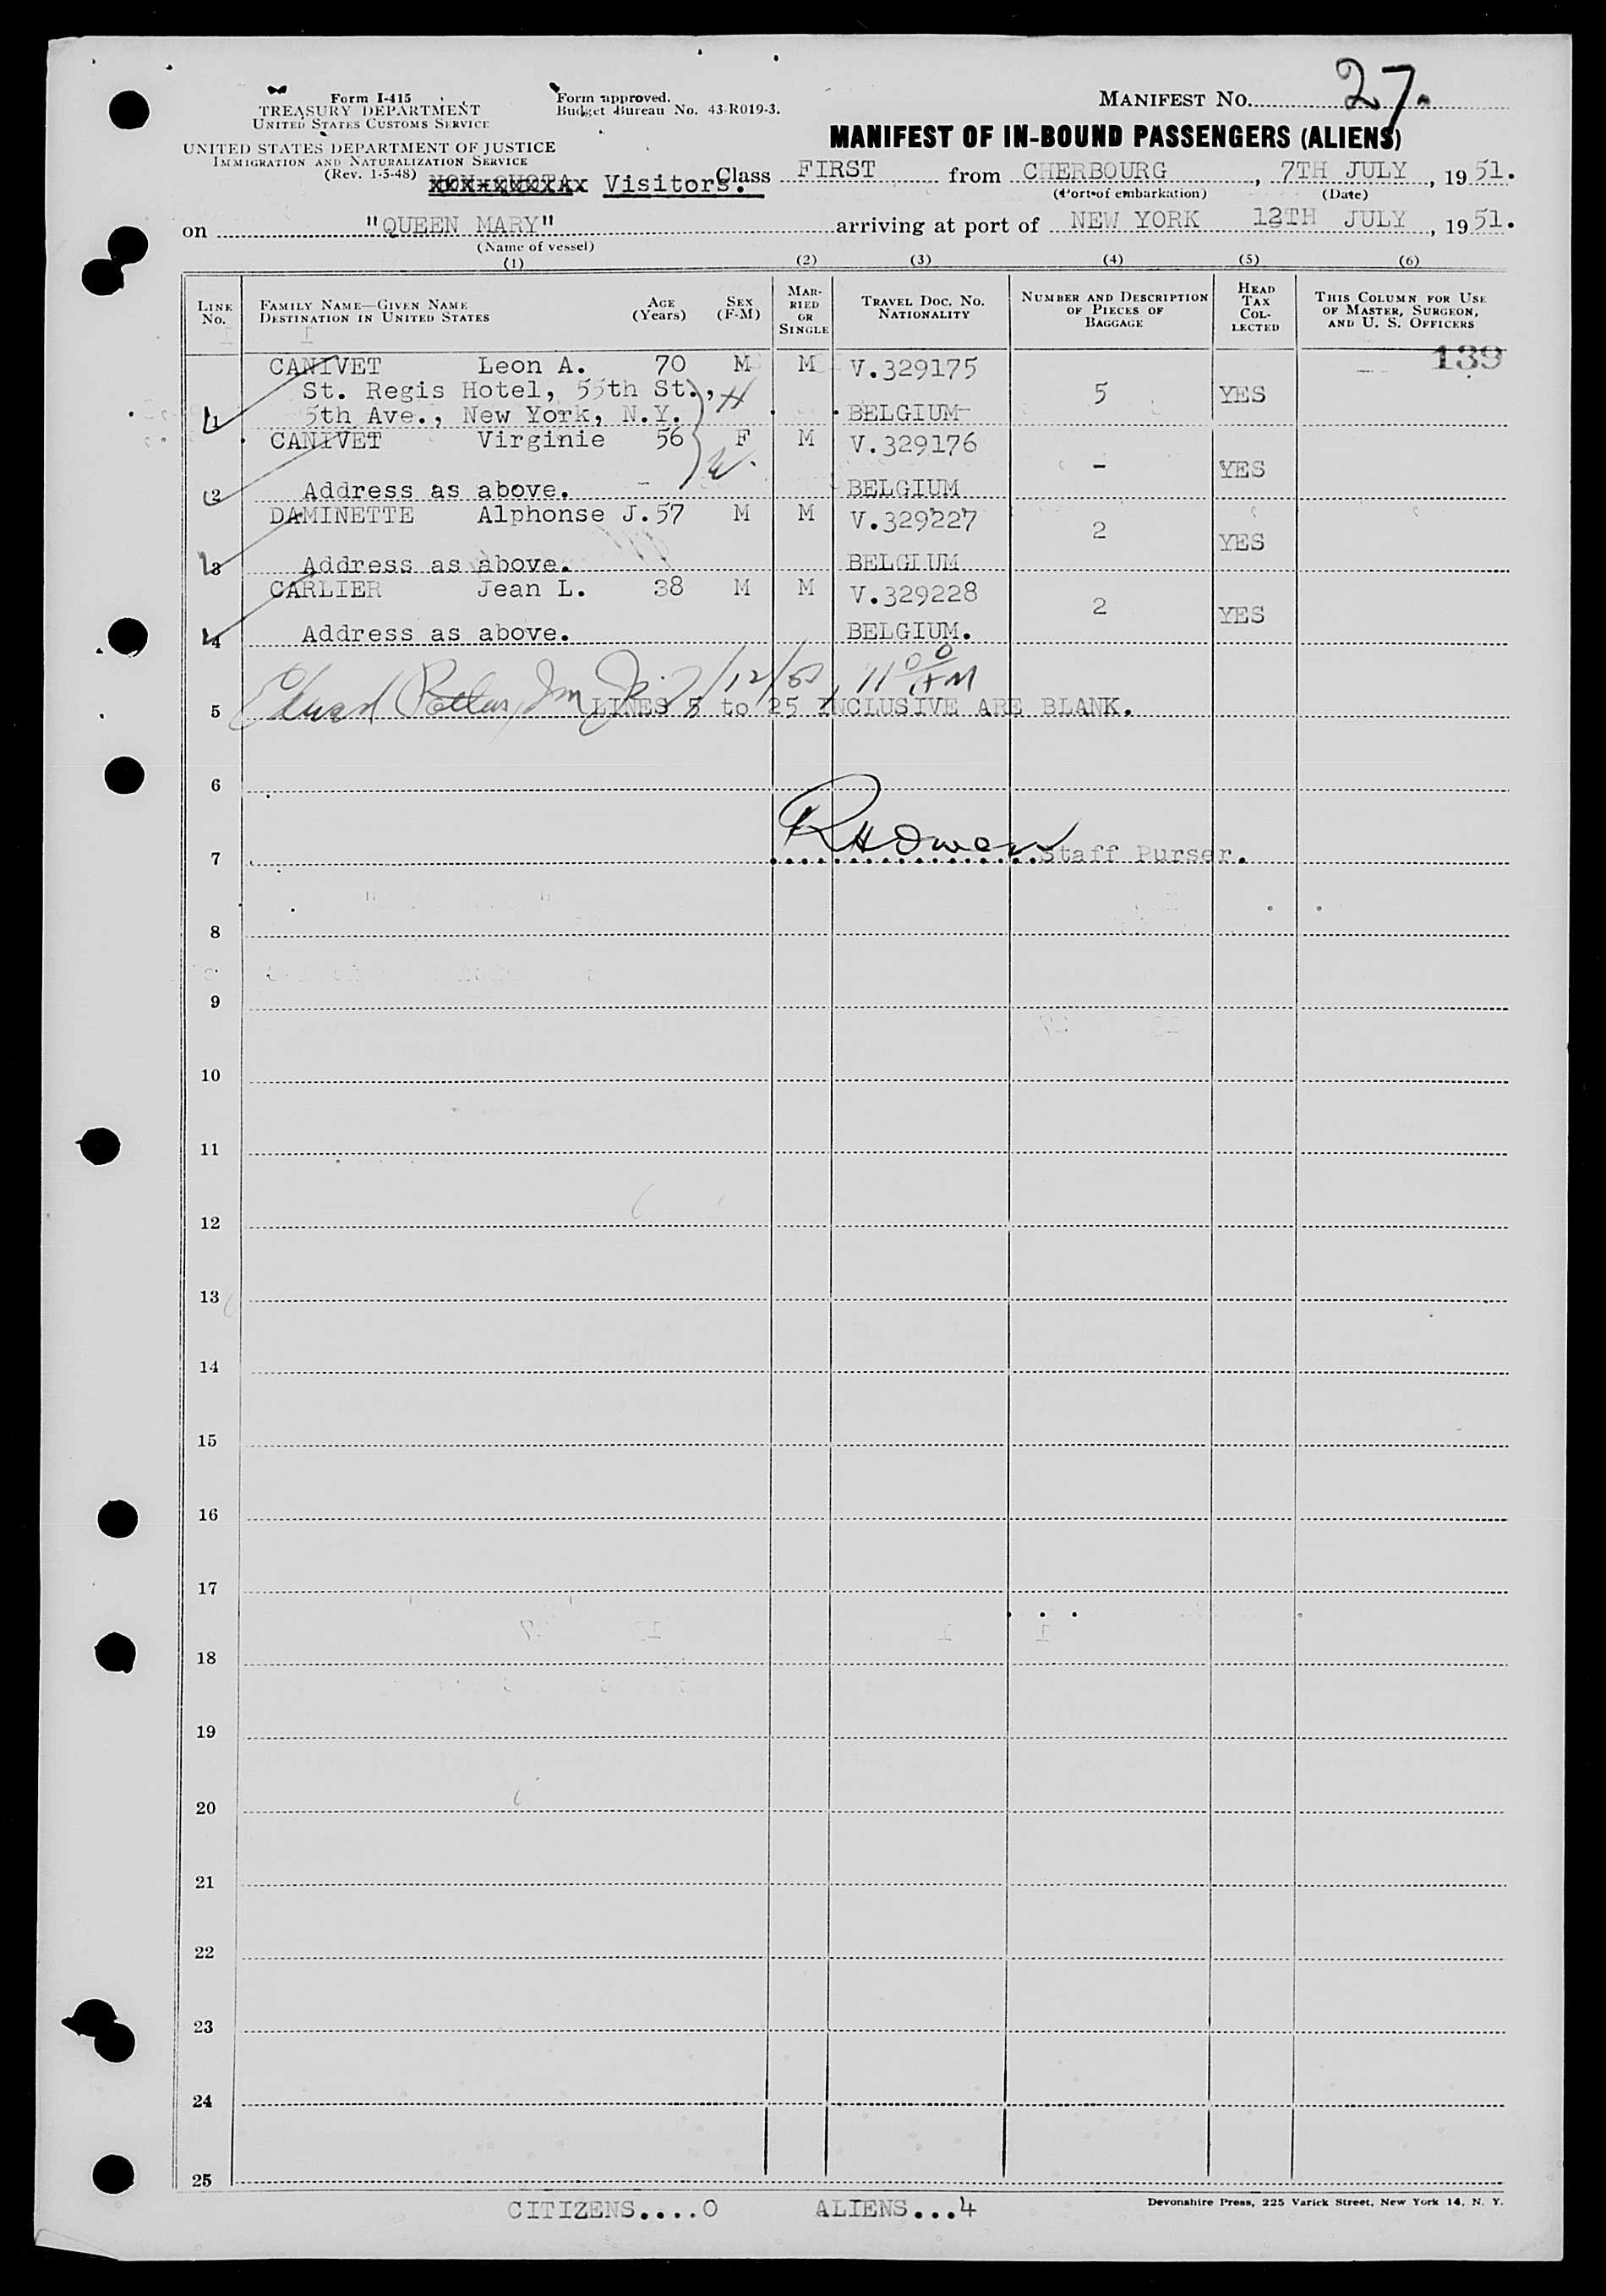 27.
Form I-415
TREASURY DEPARTMENT
UNITED STATES CUSTOMS SERVICE
Form approved.
Budget Bureau No. 43-R019-3.
MANIFEST NO.
MANIFEST OF IN-BOUND PASSENGERS (ALIENS)
UNITED STATES DEPARTMENT OF JUSTICE
IMMIGRATION AND NATURALIZATION SERVICE
(Rev. 1-5-48)
Visitors. Class FIRST from CHERBOURG, 7TH JULY, 1951.
(Port of embarkation) (Date)
on "QUEEN MARY" arriving at port of NEW YORK 12TH JULY, 1951.
(Name of vessel)
(1) (2) (3) (4) (5) (6)
LINE NO. FAMILY NAME—GIVEN NAME DESTINATION IN UNITED STATES AGE (YEARS) SEX (F-M) MARRIED OR SINGLE TRAVEL DOC. NO. NATIONALITY NUMBER AND DESCRIPTION OF PIECES OF BAGGAGE HEAD TAX COLLECTED THIS COLUMN FOR USE OF MASTER, SURGEON, AND U. S. OFFICERS
139
CANIVET Leon A. 70 M M V.329175
St. Regis Hotel, 55th St., H 5 YES
1 5th Ave., New York, N.Y. BELGIUM
CANIVET Virginie 56 F M V.329176
W. - YES
2 Address as above. BELGIUM
DAMINETTE Alphonse J. 57 M M V.329227
2 YES
3 Address as above. BELGIUM
CARLIER Jean L. 38 M M V.329228
2 YES
4 Address as above. BELGIUM.
Edward 7/12/51 11 00 AM
5 LINES 5 to 25 INCLUSIVE ARE BLANK.
6
R H Owen
7 Staff Purser.
8
9
10
11
12
13
14
15
16
17
18
19
20
21
22
23
24
25
CITIZENS....0 ALIENS...4
Devonshire Press, 225 Varick Street, New York 14, N. Y.